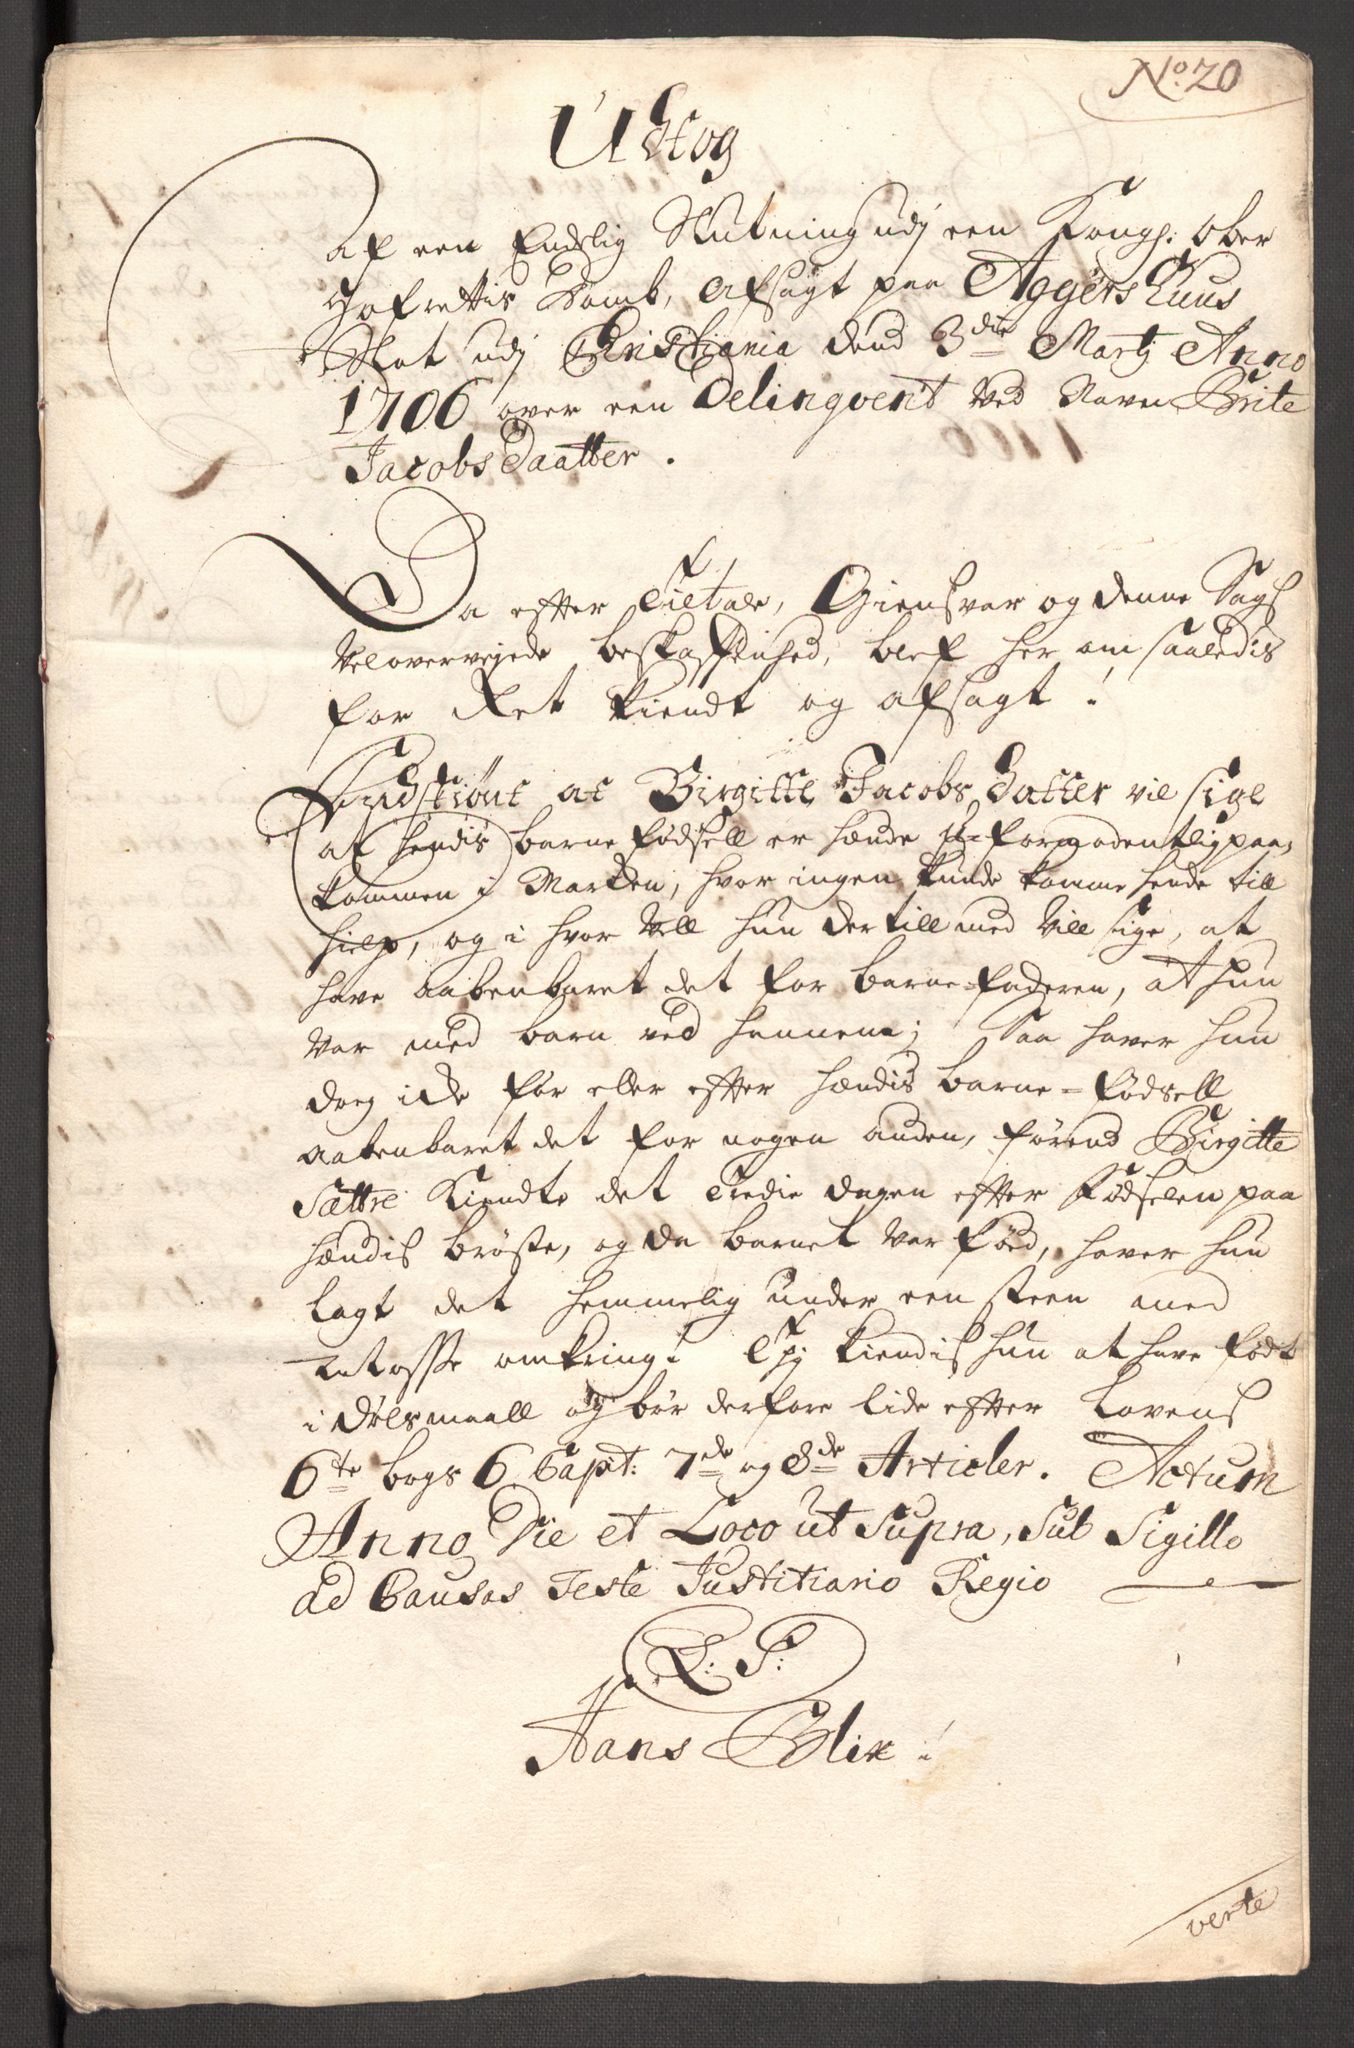 No. 20
Udtog
af een Endelig Slutning udj een Kongl: Ober
Hofrettis Domb, afsagt paa Aggers Huus
Slot udj Christiania dend 3die Martj Anno
1706 over een Delinqvent ved Navn Brite
Jacobs Daatter.
Da efter Tiltale, Giensvar og denne Sags
Veloverveyede beskaffenhed, blef her om saaledis
for Ret kiendt og afsagt!
Endskiønt at Birgitte Jacobs Datter vil sige
at hendis barne fødsell er hænde u-formodentlig paa-
kommen i Marken, hvor ingen kunde komme hende till
hielp, og i hvor Vell hun der till med Vill sige, at
have aabenbaret det for barne-faderen, at hun
var med barn ved hannem; Saa haver hun
dog icke før eller efter hændis barne-fødsell
aabenbaret det for nogen anden, førend Birgitte
Sættre kiendte det tredie dagen efter Fødselen paa
hændis bryste, og da barnet var fød, haver hun
lagt det hemmelig under een steen med
omkring! Thj kiendis hun at have født
i Dølsmaall og bør derfore lide efter Lovens
6te bogs 6 Capt: 7de og 8de Articler. Actum
Anno Die et Loco ut Supra, Sub Sigillo
ad Causas Teste Justitiario Regio
L: S:
Hans Blix!
verte